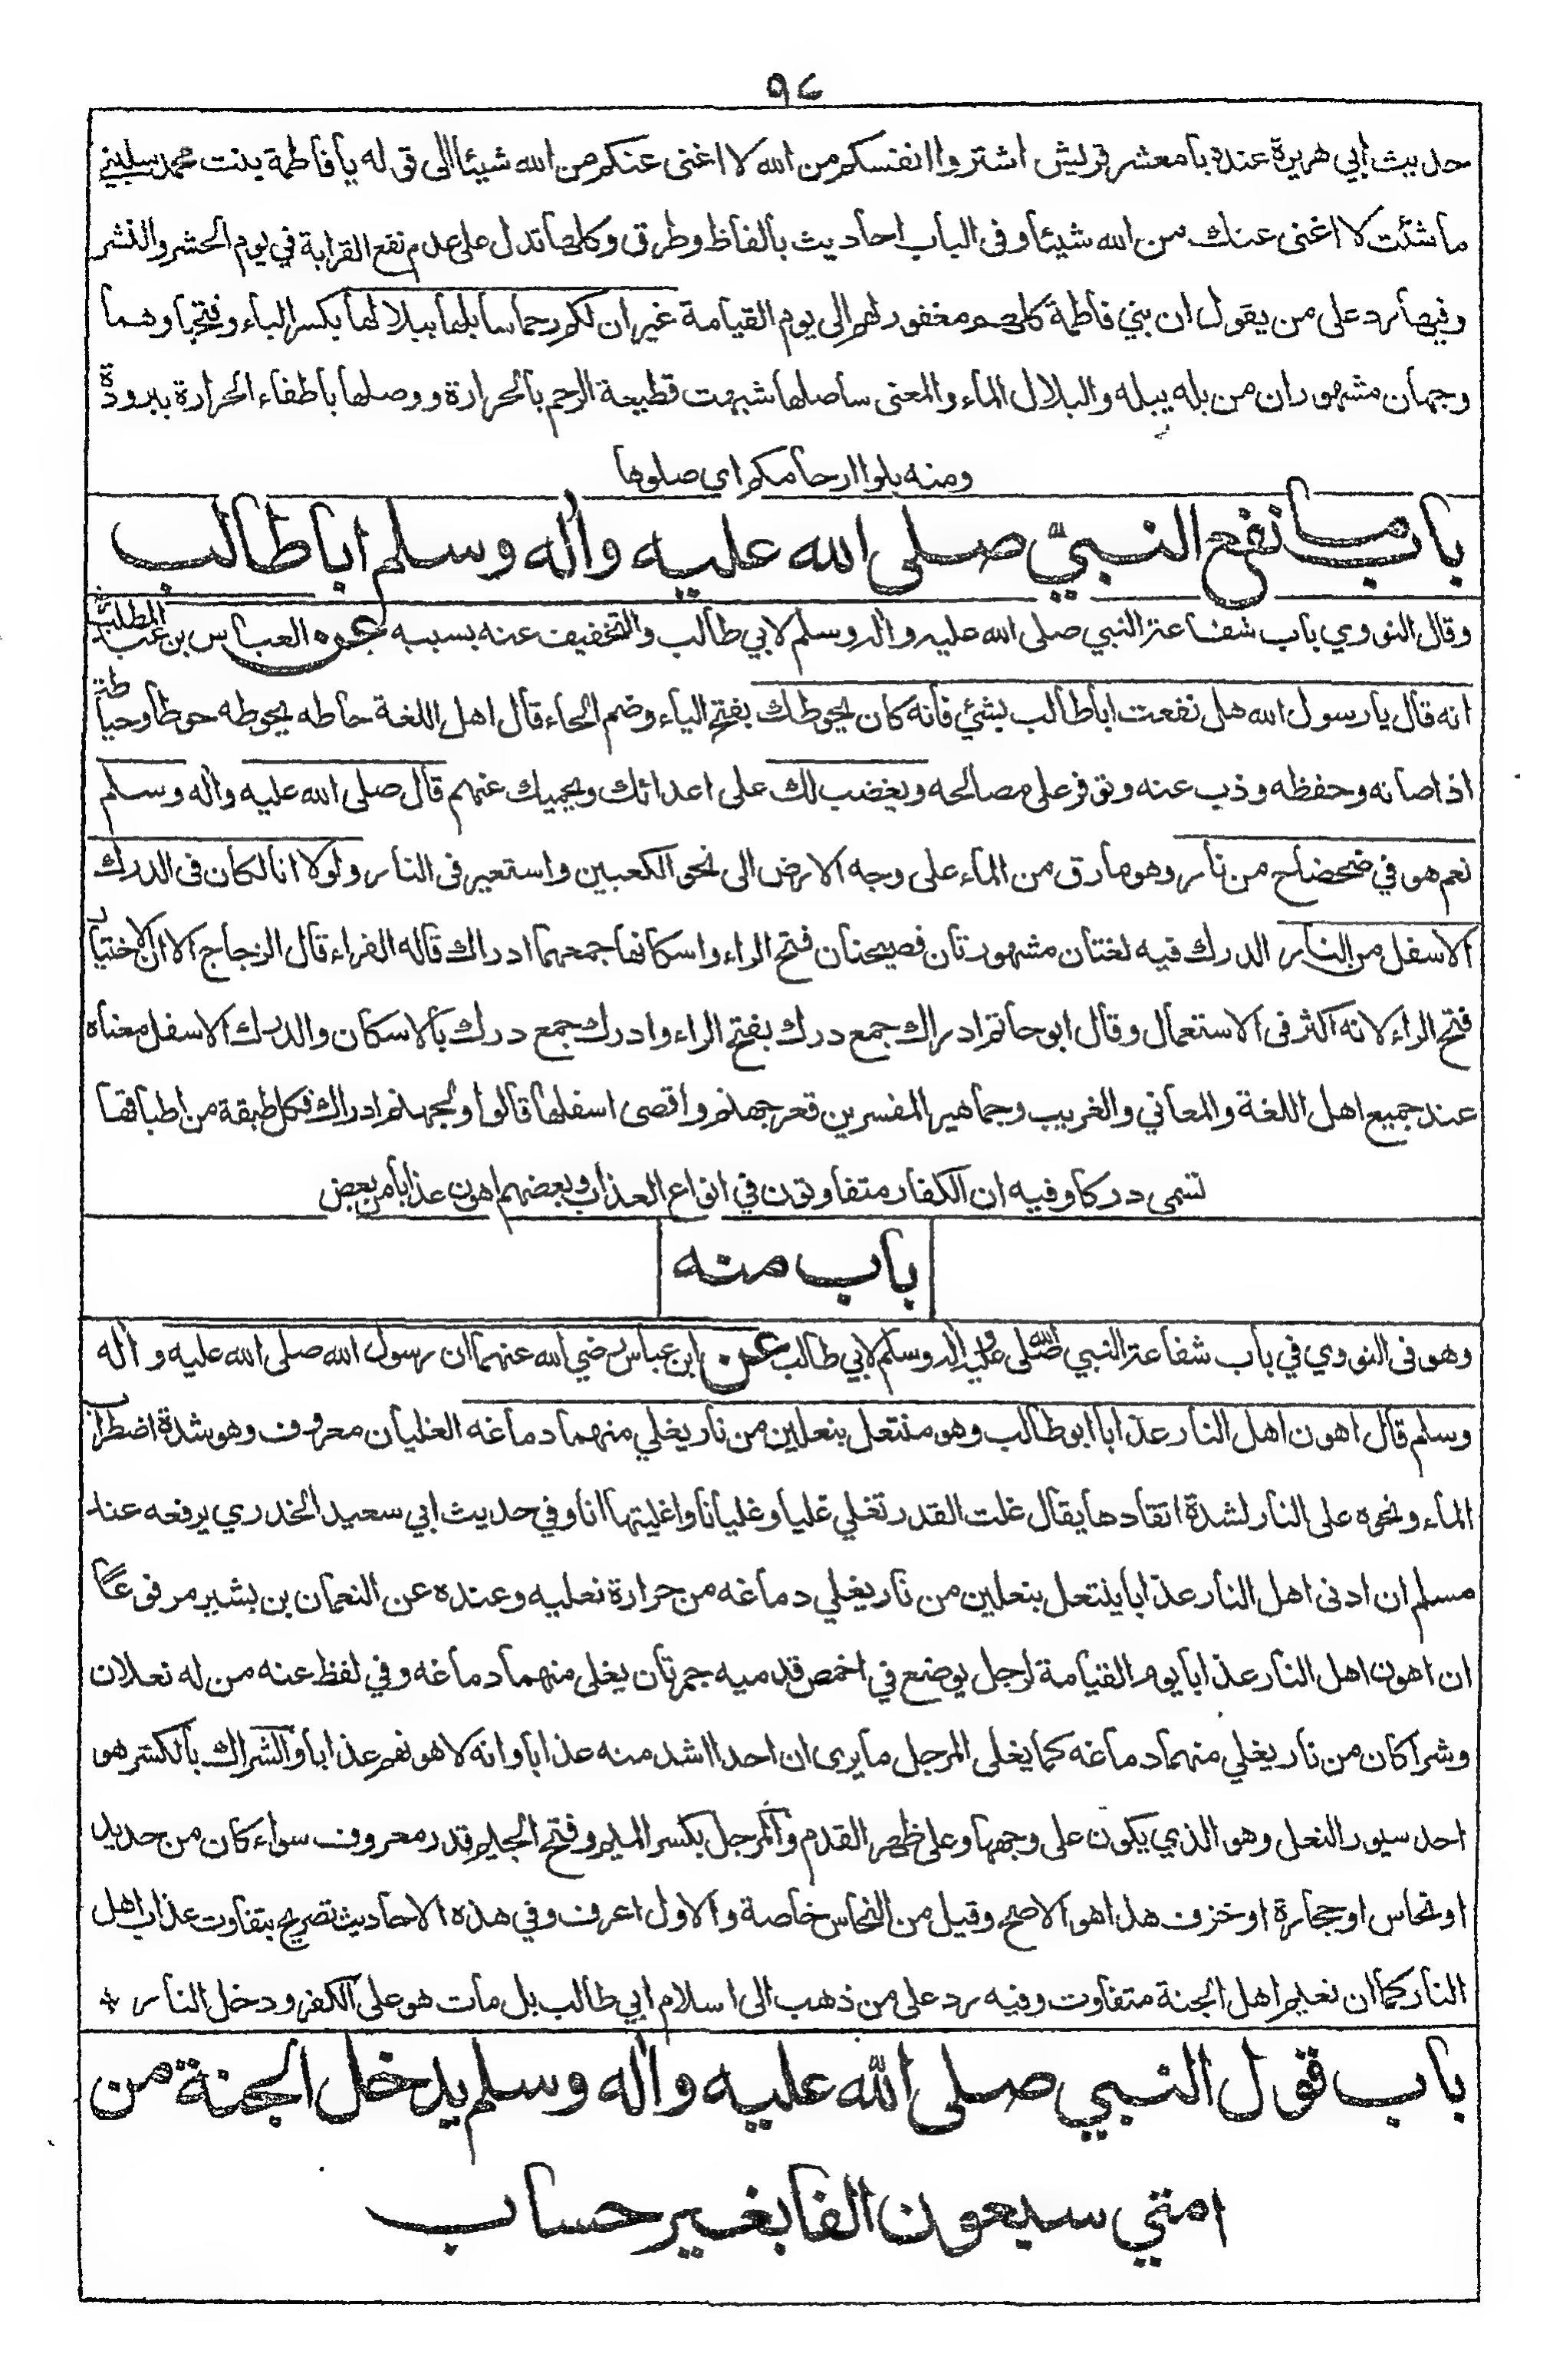 ٩٢
حديث ابي هريرة عنده يا معشر قريش اشتروا انفسكم من الله لا اغنى عنكم من الله شيئا الى قوله يا فاطمة بنت محمد سليني
ما شئت لا اغنى عنك من الله شيئا وفى الباب احاديث بالفاظ وطرق وكلها تدل على عدم نفع القرابة في يوم الحشر والنشر
وفيها رد على من يقول ان بني فاطمة كلهم مغفور لهم الى يوم القيامة غير ان لكم رحما سابلها ببلالها بكسر الباء وفتحها وهما
وجهان مشهوران من بله يبله والبلال الماء والمعنى ساصلها شبهت قطيعة الرحم بالحرارة ووصلها باطفاء الحرارة ببرودة
ومنه بلوا ارحامكم اى صلوها
باب ما نفع النبيّ صلى الله عليه واٰله وسلم ابا طالب
وقال النووي باب شفاعة النبي صلى الله عليه واله وسلم لابي طالب والتخفيف عنه بسببه عن العباس بن عبد المطلب
انه قال يا رسول الله هل نفعت ابا طالب بشئ فانه كان يحوطك بفتح الياء وضم الحاء قال اهل اللغة حاطه يحوطه حوطا وحياطة
اذا صانه وحفظه وذب عنه وتوفر على مصالحه ويغضب لك على اعدائك ويحميك عنهم قال صلى الله عليه واٰله وسلم
نعم هو في ضحضاح من نار وهو ما رق من الماء على وجه الارض الى نحو الكعبين واستعير فى النار ولولا انا لكان فى الدرك
الاسفل من النار الدرك فيه لغتان مشهورتان فصيحتان فتح الراء واسكانها جمعهما ادراك قاله الفراء قال الزجاج الا ان الاختيار
فتح الراء لانه اكثر فى الاستعمال وقال ابو حاتم ادراك جمع درك بفتح الراء وادرك جمع درك بالاسكان والدرك الاسفل معناه
عند جميع اهل اللغة والمعاني والغريب وجماهير المفسرين قعر جهنم واقصى اسفلها قالوا ولجهنم ادراك فكل طبقة من اطباقها
تسمى دركا وفيه ان الكفار متفاوتون في انواع العذاب وبعضهم اهون عذابا من بعض
باب منه
وهو فى النووي في باب شفاعة النبي صلى الله عليه واله وسلم لابي طالب عن ابن عباس رضي الله عنهما ان رسول الله صلى الله عليه واٰله
وسلم قال اهون اهل النار عذابا ابو طالب وهو منتعل بنعلين من نار يغلي منهما دماغه الغليان معروف وهو شدة اضطراب
الماء ونحوه على النار لشدة اتقادها يقال غلت القدر تغلي غليا وغليانا واغليتها انا وفي حديث ابي سعيد الخدري يرفعه عند
مسلم ان ادنى اهل النار عذابا ينتعل بنعلين من نار يغلي دماغه من حرارة نعليه وعنده عن النعمان بن بشير مرفوعًا
ان اهون اهل النار عذابا يوم القيامة لرجل يوضع في اخمص قدميه جمرتان يغلى منهما دماغه وفي لفظ عنه من له نعلان
وشراكان من نار يغلي منهما دماغه كما يغلى المرجل ما يرى ان احدا اشد منه عذابا وانه لاهونهم عذابا والشراك بالكسر هو
احد سيور النعل وهو الذي يكون على وجهها وعلى ظهر القدم والمرجل بكسر الميم وفتح الجيم قدر معروف سواء كان من حديد
او نحاس او حجارة او خزف هذا هو الاصح وقيل من النحاس خاصة والاول اعرف وفي هذه الاحاديث تصريح بتفاوت عذاب اهل
النار كما ان نعيم اهل الجنة متفاوت وفيه رد على من ذهب الى اسلام ابي طالب بل مات هو على الكفر ودخل النار
باب قول النبي صلى الله عليه واٰله وسلم يدخل الجنة من
امتي سبعون الفا بغير حساب